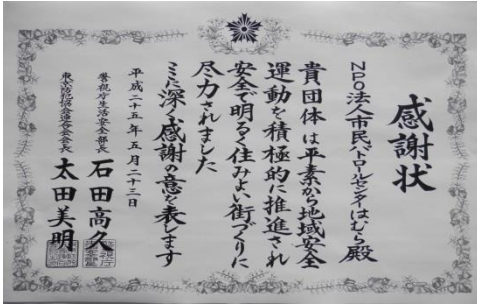 感謝状
NPO法人市民パトロールセンターはむら殿
貴団体は平素から地域安全
運動を積極的に推進され
安全で明るく住みよい街づくりに
尽力されました
ここに深く感謝の意を表します
平成二十五年五月二十三日
警視庁生活安全部長 石田高久
東京防犯協会連合会会長 太田美明